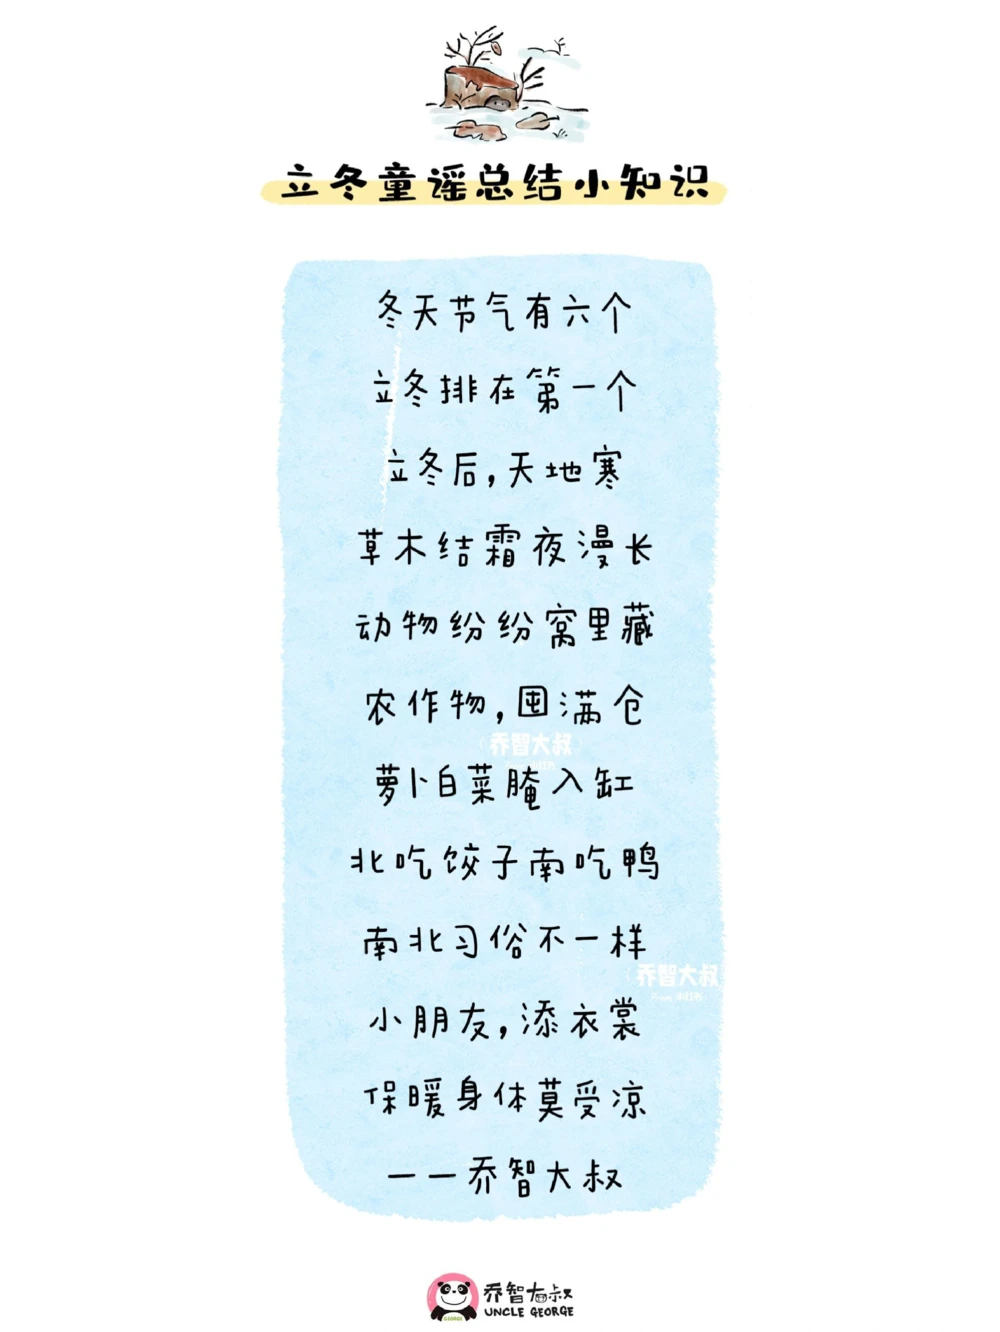 立冬童谣总结小知识
冬天节气有六个
立冬排在第一个
立冬后,天地寒
草木结霜夜漫长
动物纷纷窝里藏
农作物,囤满仓
乔智大叔
萝卜白菜腌入缸
北吃饺子南吃鸭
南北习俗不一样
乔智大叔
From 小红书
小朋友,添衣裳
保暖身体莫受凉
——乔智大叔
乔智大叔
UNCLE GEORGE
GEORGE